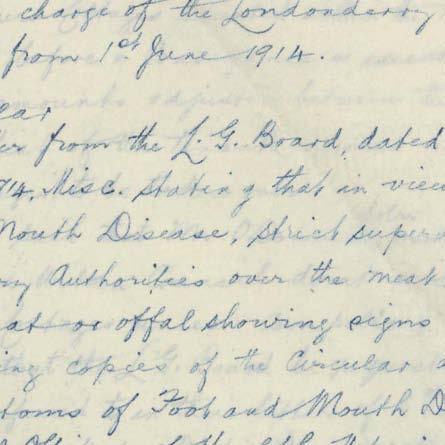 charge of the Londonderry
from 1st June 1914.
ear
er from the L. G. Board, dated
914, Misc. stating that in view
Mouth Disease, strict superv
ry Authorities over the meat
at or offal showing signs
ing copies of the Circular a
toms of Foot and Mouth D